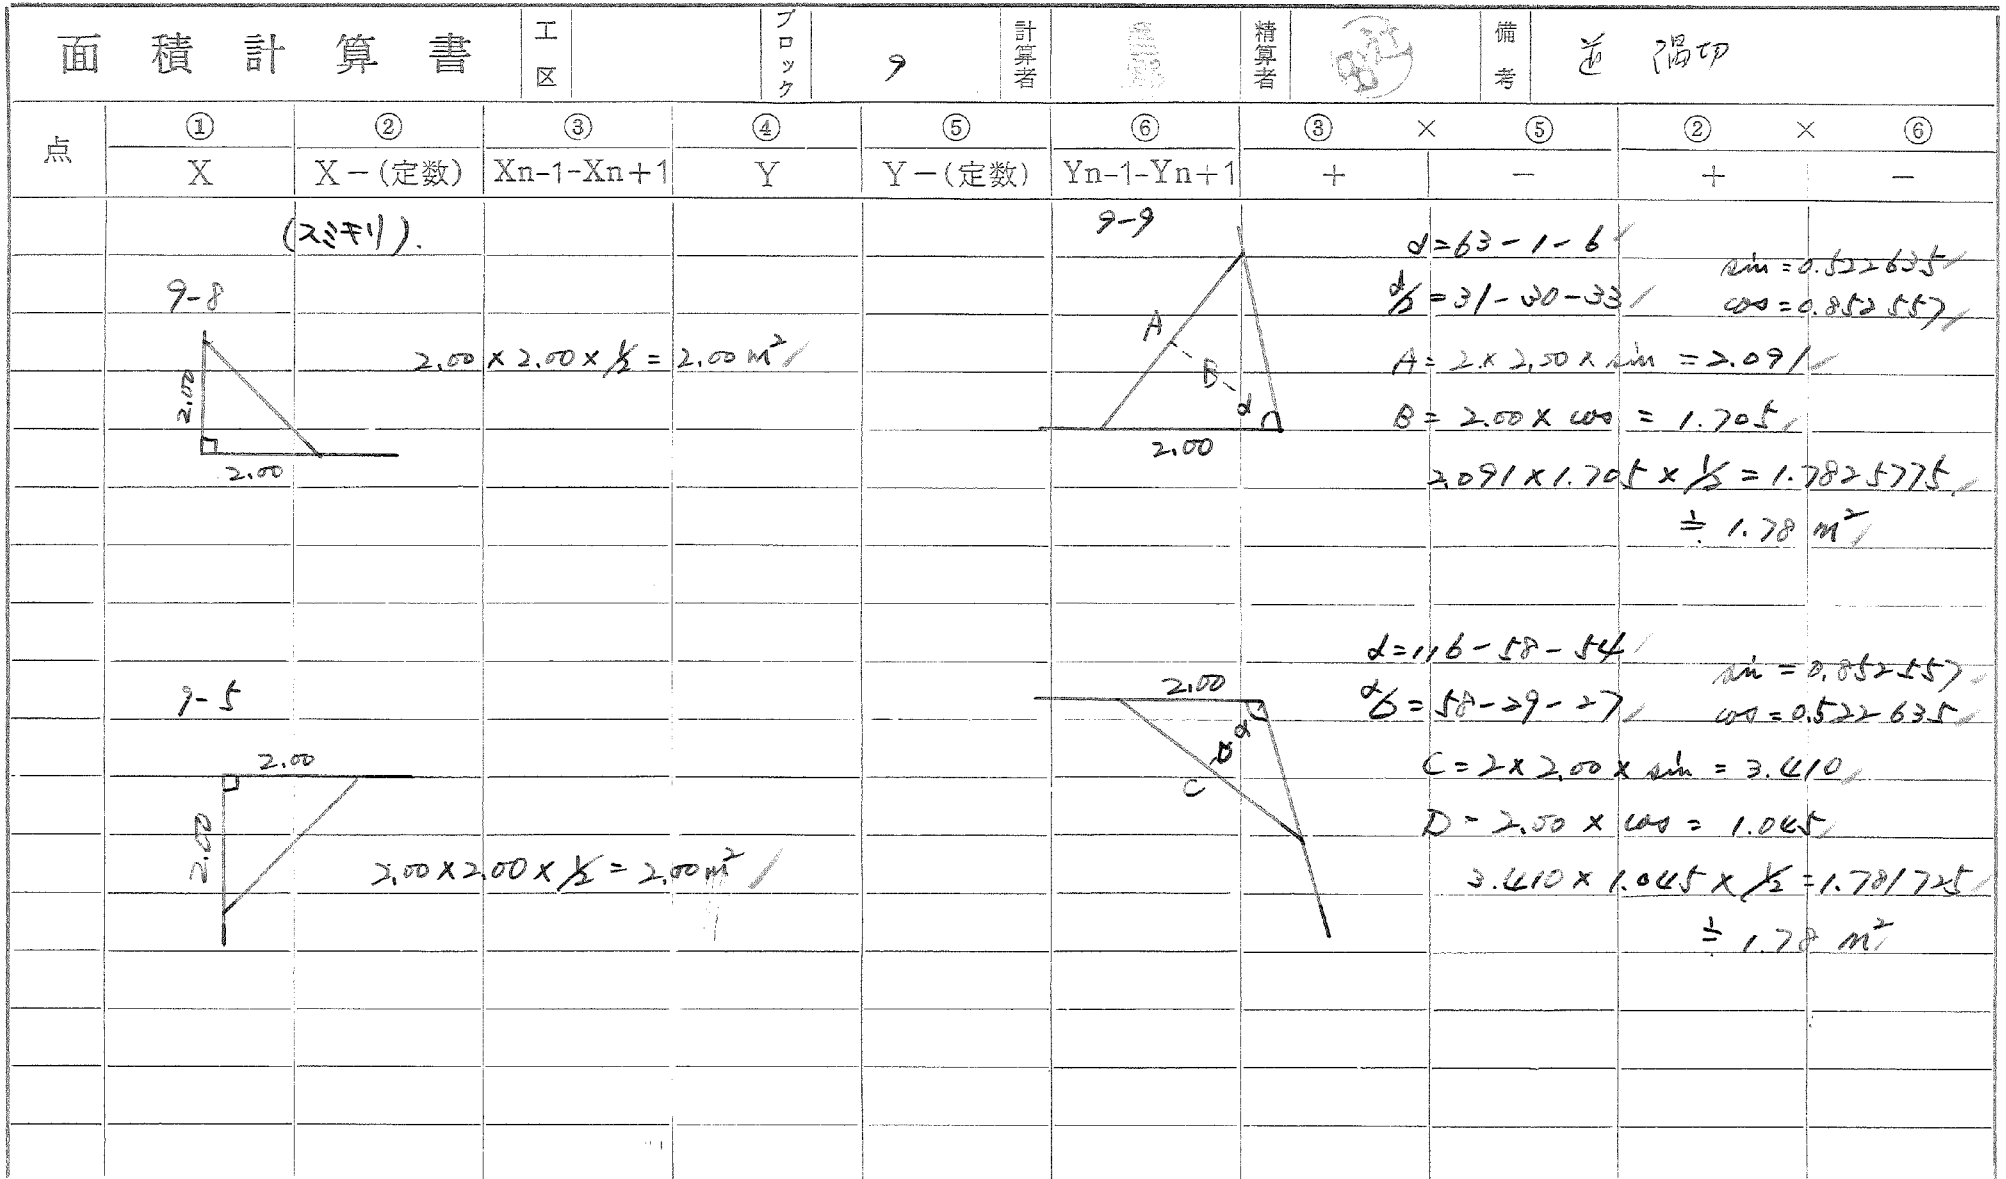 面積計算書 工区 ブロック 9 計算者 精算者 備考 道 隅切
点 ① ② ③ ④ ⑤ ⑥ ③ × ⑤ ② × ⑥
X X-(定数) Xn-1-Xn+1 Y Y-(定数) Yn-1-Yn+1 + - + -
(スミキリ).
9-8
2.00
2.00
2.00 × 2.00 × 1/2 = 2.00 m²
9-5
2.00
2.00
2.00 × 2.00 × 1/2 = 2.00 m²
9-9
A
B
α
2.00
α=63-1-6
α/2=31-30-33
sin=0.522635
cos=0.852557
A=2×2.00×sin=2.091
B=2.00×cos=1.705
2.091×1.705×1/2=1.7825775
≒1.78 m²
2.00
α
D
C
α=116-58-54
α/2=58-29-27
sin=0.852557
cos=0.522635
C=2×2.00×sin=3.410
D=2.00×cos=1.045
3.410×1.045×1/2=1.781725
≒1.78 m²